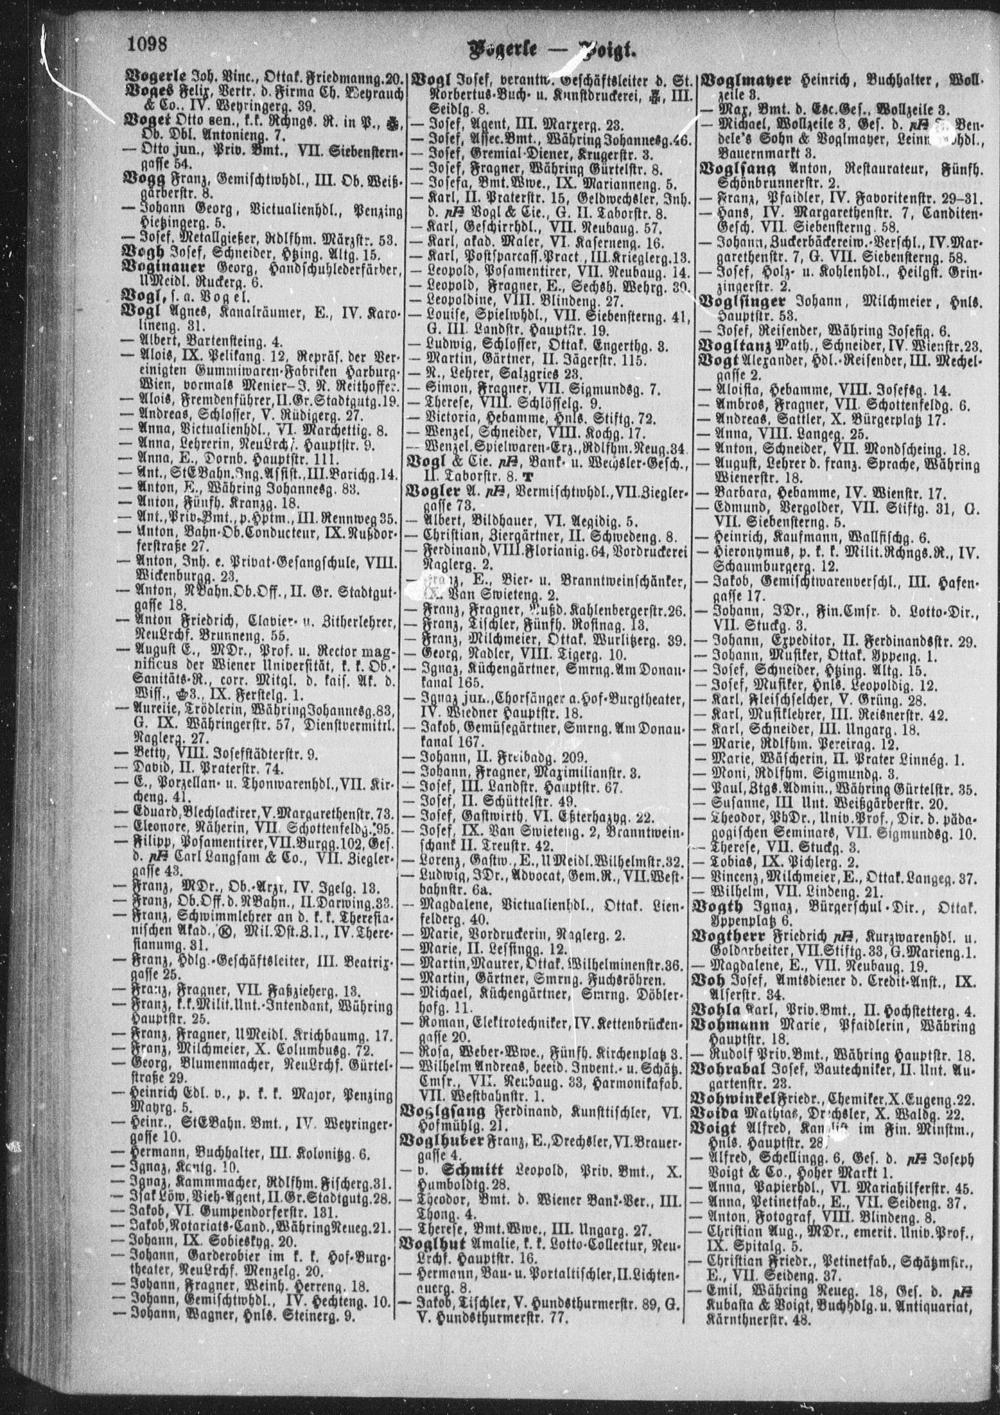 1098
Vogerle — Voigt.
Vogerle Joh. Vinc., Ottak. Friedmanng. 20.
Voges Felix, Vertr. d. Firma Ch. Weyrauch
& Co., IV. Weyringerg. 39.
Voget Otto sen., k.k. Rchngs. R. in P.,
Ob. Dbl. Antonieng. 7.
— Otto jun., Priv. Bmt., VII. Siebenstern-
gasse 54.
Vogg Franz, Gemischtwhdl., III. Ob. Weiß-
gärberstr. 8.
— Johann Georg, Victualienhdl., Penzing
Hietzingerg. 5.
— Josef, Metallgießer, Rdlfhm. Märzstr. 53.
Vogh Josef, Schneider, Htzing. Altg. 15.
Voginauer Georg, Handschuhlederfärber,
UMeidl. Ruckerg. 6.
Vogl, s. a. Vogel.
Vogl Agnes, Kanalräumer, E., IV. Karo-
lineng. 31.
— Albert, Bartensteing. 4.
— Alois, IX. Pelikang. 12, Repräs. der Ver-
einigten Gummiwaren-Fabriken Harburg-
Wien, vormals Menier-J. N. Reithoffer.
— Alois, Fremdenführer, II. Gr. Stadtgutg. 19.
— Andreas, Schlosser, V. Rüdigerg. 27.
— Anna, Victualienhdl., VI. Marchettig. 8.
— Anna, Lehrerin, NeuLrchf. Hauptstr. 9.
— Anna, E., Dornb. Hauptstr. 111.
— Ant., StEBahn. Ing. Assist., III. Barichg. 14.
— Anton, E., Währing Johannesg. 83.
— Anton, Fünfh. Kranzg. 18.
— Ant., Priv. Bmt., p. Hptm., III. Rennweg 35.
— Anton, Bahn-Ob. Conducteur, IX. Nußdor-
ferstraße 27.
— Anton, Inh. e. Privat-Gesangschule, VIII.
Wickenburgg. 23.
— Anton, NBahn. Ob. Off., II. Gr. Stadtgut-
gasse 18.
— Anton Friedrich, Clavier- u. Zitherlehrer,
NeuLrchf. Brunneng. 55.
— August E., MDr., Prof. u. Rector mag-
nificus der Wiener Universität, k. k. Ob.-
Sanitäts-R., corr. Mitgl. d. kais. Ak. d.
Wiss., 3., IX. Ferstelg. 1.
— Aurelie, Trödlerin, Währing Johannesg. 83,
G. IX. Währingerstr. 57, Dienstvermittl.
Naglerg. 27.
— Betty, VIII. Josefstädterstr. 9.
— David, II. Praterstr. 74.
— E., Porzellan- u. Thonwarenhdl., VII. Kir-
cheng. 41.
— Eduard, Blechlackirer, V. Margarethenstr. 73.
— Eleonore, Näherin, VII. Schottenfeldg. 95.
— Filipp, Posamentirer, VII. Burgg. 102, Ges.
d. Carl Langsam & Co., VII. Ziegler-
gasse 43.
— Franz, MDr., Ob.-Arzt, IV. Igelg. 13.
— Franz, Ob. Off. d. NBahn., II. Darwing. 33.
— Franz, Schwimmlehrer an d. k. k. Theresia-
nischen Akad., Mil. Dst. Z. 1., IV. There-
sianumg. 31.
— Franz, Hdlg.-Geschäftsleiter, III. Beatrix-
gasse 25.
— Franz, Fragner, VII. Faßzieherg. 13.
— Franz, k.k. Milit. Unt.-Intendant, Währing
Hauptstr. 25.
— Franz, Fragner, UMeidl. Krichbaumg. 17.
— Franz, Milchmeier, X. Columbusg. 72.
— Georg, Blumenmacher, NeuLrchf. Gürtel-
straße 29.
— Heinrich Edl. v., p. k. k. Major, Penzing
Mayrg. 5.
— Heinr., StEBahn. Bmt., IV. Weyringer-
gasse 10.
— Hermann, Buchhalter, III. Kolonitzg. 6.
— Ignaz, Kantg. 10.
— Ignaz, Kammmacher, Rdlfhm. Fischerg. 31.
— Isak Löw, Vieh-Agent, II. Gr. Stadtgutg. 28.
— Jakob, VI. Gumpendorferstr. 131.
— Jakob, Notariats-Cand., Währing Neueg. 21.
— Johann, IX. Sobieskyg. 20.
— Johann, Garderobier im k. k. Hof-Burg-
theater, NeuLrchf. Menzelg. 20.
— Johann, Fragner, Weinh. Herreng. 18.
— Johann, Gemischtwhdl., IV. Hechteng. 10.
— Johann, Wagner, Hnls. Steinerg. 9.
Vogl Josef, verantw. Geschäftsleiter d. St.
Norbertus-Buch- u. Kunstdruckerei, III.
Seidlg. 8.
— Josef, Agent, III. Marxerg. 23.
— Josef, Assec. Bmt., Währing Johannesg. 46.
— Josef, Gremial-Diener, Krugerstr. 3.
— Josef, Fragner, Währing Gürtelstr. 8.
— Josefa, Bmt. Wwe., IX. Marianneng. 5.
— Karl, II. Praterstr. 15, Geldwechsler, Inh.
d. Vogl & Cie., G. II. Taborstr. 8.
— Karl, Geschirrhdl., VII. Neubaug. 57.
— Karl, akad. Maler, VI. Kaserneng. 16.
— Karl, Postsparcass. Pract., III. Kriegler g. 13.
— Leopold, Posamentirer, VII. Neubaug. 14.
— Leopold, Fragner, E., Sechsh. Wehrg. 39.
— Leopoldine, VIII. Blindeng. 27.
— Louise, Spielwhdl., VII. Siebensterng. 41,
G. III. Landstr. Hauptstr. 19.
— Ludwig, Schlosser, Ottak. Engerthg. 3.
— Martin, Gärtner, II. Jägerstr. 115.
— N., Lehrer, Salzgries 23.
— Simon, Fragner, VII. Sigmundsg. 7.
— Therese, VIII. Schlösselg. 9.
— Victoria, Hebamme, Hnls. Stiftg. 72.
— Wenzel, Schneider, VIII. Kochg. 17.
— Wenzel, Spielwaren-Erz., Rdlfhm. Neug. 34.
Vogl & Cie. Bank- u. Wechsler-Gesch.,
II. Taborstr. 8. T
Vogler A. Vermischtwhdl., VII. Ziegler-
gasse 73.
— Albert, Bildhauer, VI. Aegidig. 5.
— Christian, Ziergärtner, II. Schwedeng. 8.
— Ferdinand, VIII. Florianig. 64, Vordruckerei
Naglerg. 2.
— Franz, E., Bier- u. Branntweinschänker,
IX. Van Swieteng. 2.
— Franz, Fragner, Nußd. Kahlenbergerstr. 26.
— Franz, Tischler, Fünfh. Rostnag. 13.
— Franz, Milchmeier, Ottak. Wurlitzerg. 39.
— Georg, Nadler, VIII. Tigerg. 10.
— Ignaz, Küchengärtner, Smrng. Am Donau-
kanal 165.
— Ignaz jun., Chorsänger a. Hof-Burgtheater,
IV. Wiedner Hauptstr. 18.
— Jakob, Gemüsegärtner, Smrng. Am Donau-
kanal 167.
— Johann, II. Freibadg. 209.
— Johann, Fragner, Maximilianstr. 3.
— Josef, III. Landstr. Hauptstr. 67.
— Josef, II. Schüttelstr. 49.
— Josef, Gastwirth, VI. Eßterhazyg. 22.
— Josef, IX. Van Swieteng. 2, Branntwein-
schank II. Treustr. 42.
— Lorenz, Gastw., E., UMeidl. Wilhelmstr. 32.
— Ludwig, JDr., Advocat, Gem. R., VII. West-
bahnstr. 6a.
— Magdalene, Victualienhdl., Ottak. Lien-
felderg. 40.
— Marie, Vordruckerin, Naglerg. 2.
— Marie, II. Lessingg. 12.
— Martin, Maurer, Ottak. Wilhelminenstr. 36.
— Martin, Gärtner, Smrng. Fuchsröhren.
— Michael, Küchengärtner, Smrng. Döbler-
hofg. 11.
— Roman, Elektrotechniker, IV. Kettenbrücken-
gasse 20.
— Rosa, Weber-Wwe., Fünfh. Kirchenplatz 3.
— Wilhelm Andreas, beeid. Invent.- u. Schätz.
Cmsr., VII. Neubaug. 33, Harmonikafab.
VII. Westbahnstr. 1.
Voglgsang Ferdinand, Kunsttischler, VI.
Hofmühlg. 21.
Voglhuber Franz, E., Drechsler, VI. Brauer-
gasse 4.
— v. Schmitt Leopold, Priv. Bmt., X.
Humboldtg. 28.
— Theodor, Bmt. d. Wiener Bank-Ver., III.
Thong. 4.
— Therese, Bmt. Wwe., III. Ungarg. 27.
Voglhut Amalie, k. k. Lotto-Collectur, Neu-
Lrchf. Hauptstr. 16.
— Hermann, Bau- u. Portaltischler, II. Lichten-
auerg. 8.
— Jakob, Tischler, V. Hundsthurmerstr. 89, G.
V. Hundsthurmerstr. 77.
Voglmayer Heinrich, Buchhalter, Woll-
zeile 3.
— Max, Bmt. d. Esc. Ges., Wollzeile 3.
— Michael, Wollzeile 3, Ges. d. Ben-
dele's Sohn & Voglmayer, Leinwandhdl.,
Bauernmarkt 3.
Voglsang Anton, Restaurateur, Fünfh.
Schönbrunnerstr. 2.
— Franz, Pfaidler, IV. Favoritenstr. 29–31.
— Hans, IV. Margarethenstr. 7, Canditen-
Gesch. VII. Siebensterng. 58.
— Johann, Zuckerbäckereiw.-Verschl., IV. Mar-
garethenstr. 7, G. VII. Siebensterng. 58.
— Josef, Holz- u. Kohlenhdl., Heilgst. Grin-
zingerstr. 2.
Voglsinger Johann, Milchmeier, Hnls.
Hauptstr. 53.
— Josef, Reisender, Währing Josefig. 6.
Vogltanz Math., Schneider, IV. Wienstr. 23.
Vogt Alexander, Hdl.-Reisender, III. Mechel-
gasse 2.
— Aloisia, Hebamme, VIII. Josefsg. 14.
— Ambros, Fragner, VII. Schottenfeldg. 6.
— Andreas, Sattler, X. Bürgerplatz 17.
— Anna, VIII. Langeg. 25.
— Anton, Schneider, VII. Mondscheing. 18.
— August, Lehrer d. franz. Sprache, Währing
Wienerstr. 18.
— Barbara, Hebamme, IV. Wienstr. 17.
— Edmund, Vergolder, VII. Stiftg. 31, G.
VII. Siebensterng. 5.
— Heinrich, Kaufmann, Wallfischg. 6.
— Hieronymus, p. k. k. Milit. Rchngs. R., IV.
Schaumburgerg. 12.
— Jakob, Gemischtwarenverschl., III. Hafen-
gasse 17.
— Johann, JDr., Fin. Cmsr. d. Lotto-Dir.,
VII. Stuckg. 3.
— Johann, Expeditor, II. Ferdinandsstr. 29.
— Johann, Musiker, Ottak. Yppeng. 1.
— Josef, Schneider, Htzing. Altg. 15.
— Josef, Musiker, Hnls. Leopoldig. 12.
— Karl, Fleischselcher, V. Grüng. 28.
— Karl, Musiklehrer, III. Reisnerstr. 42.
— Karl, Schneider, III. Ungarg. 18.
— Marie, Rdlfhm. Pereirag. 12.
— Marie, Wäscherin, II. Prater Linnég. 1.
— Moni, Rdlfhm. Sigmundg. 3.
— Paul, Ztgs. Admin., Währing Gürtelstr. 35.
— Susanne, III Unt. Weißgärberstr. 20.
— Theodor, PhDr., Univ. Prof., Dir. d. päda-
gogischen Seminars, VII. Sigmundsg. 10.
— Therese, VII. Stuckg. 3.
— Tobias, IX. Pichlerg. 2.
— Vincenz, Milchmeier, E., Ottak. Langeg. 37.
— Wilhelm, VII. Lindeng. 21.
Vogth Ignaz, Bürgerschul-Dir., Ottak.
Yppenplatz 6.
Vogtherr Friedrich Kurzwarenhdl. u.
Goldarbeiter, VII. Stiftg. 33, G. Marieng. 1.
— Magdalene, E., VII. Neubaug. 19.
Voh Josef, Amtsdiener d. Credit-Anst., IX.
Alserstr. 34.
Vohla Karl, Priv. Bmt., II. Hochstetterg. 4.
Vohmann Marie, Pfaidlerin, Währing
Hauptstr. 18.
— Rudolf Priv. Bmt., Währing Hauptstr. 18.
Vohrabal Josef, Bautechniker, II. Unt. Au-
gartenstr. 23.
Vohwinkel Friedr., Chemiker, X. Eugeng. 22.
Voida Mathias, Drechsler, X. Waldg. 22.
Voigt Alfred, Kanzlist im Fin. Minstm.,
Hnls. Hauptstr. 28
— Alfred, Schellingg. 6, Ges. d. Joseph
Voigt & Co., Hoher Markt 1.
— Anna, Papierhdl., VI. Mariahilferstr. 45.
— Anna, Petinetfab., E., VII. Seideng. 37.
— Anton, Fotograf, VIII. Blindeng. 8.
— Christian Aug., MDr., emerit. Univ. Prof.,
IX. Spitalg. 5.
— Christian Friedr., Petinetfab., Schätzmstr.,
E., VII. Seideng. 37.
— Emil, Währing Neueg. 18, Ges. d.
Kubasta & Voigt, Buchhdlg. u. Antiquariat,
Kärnthnerstr. 48.